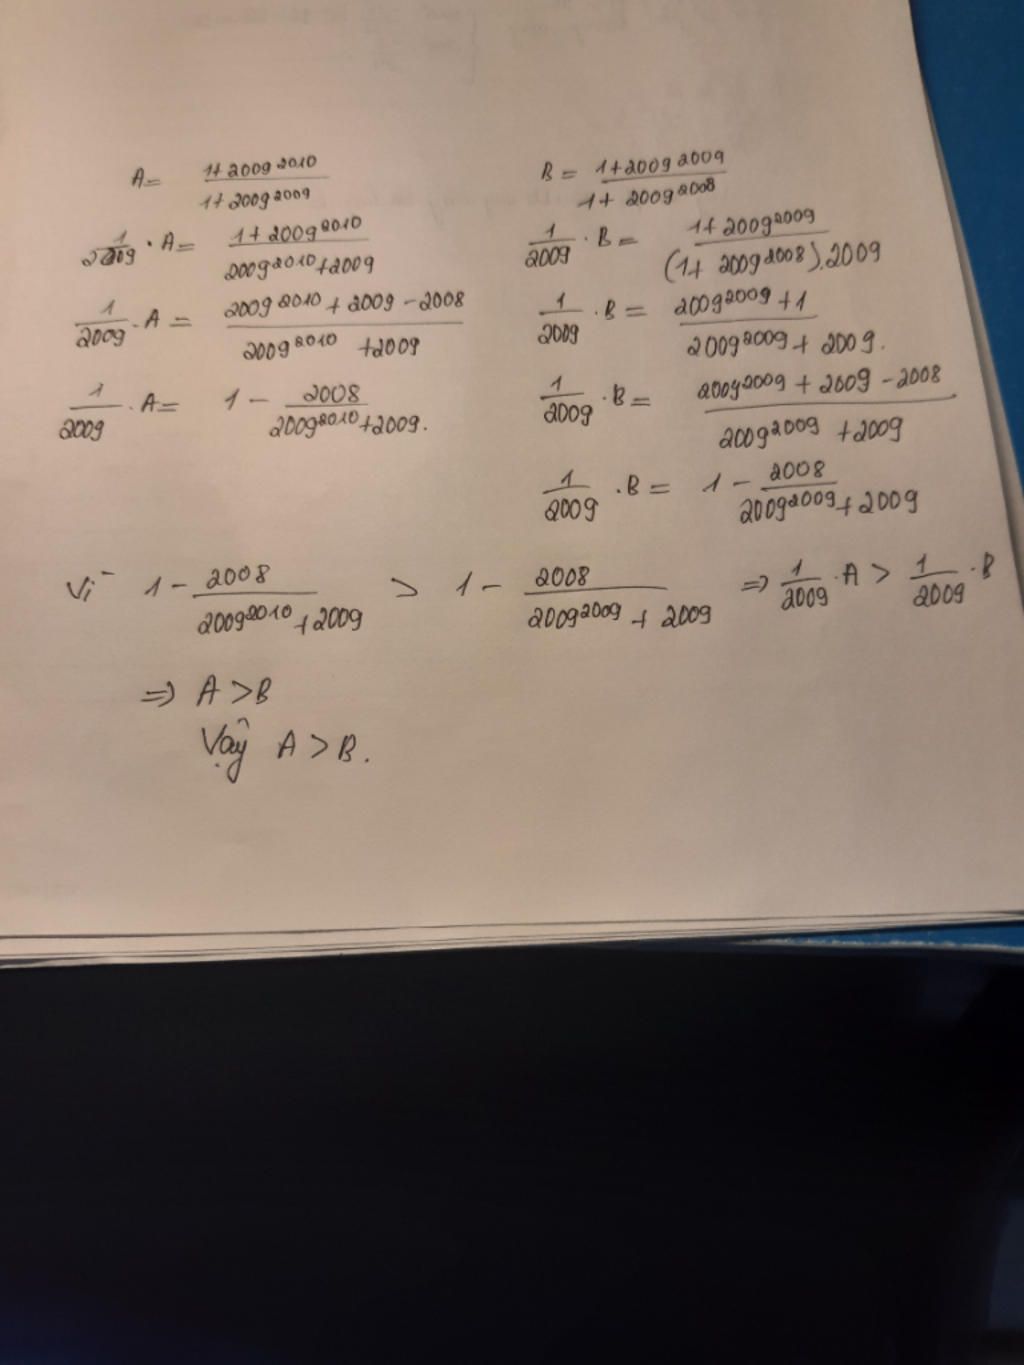 A = (1+2009^2010)/(1+2009^2009)
1/2009 · A = (1+2009^2010)/(2009^2010+2009)
1/2009 . A = (2009^2010 + 2009 - 2008)/(2009^2010 + 2009)
1/2009 . A = 1 - 2008/(2009^2010+2009).
B = (1+2009^2009)/(1+ 2009^2008)
1/2009 . B = (1+ 2009^2009)/((1+ 2009^2008).2009)
1/2009 . B = (2009^2009 + 1)/(2009^2009 + 2009).
1/2009 . B = (2009^2009 + 2009 - 2008)/(2009^2009 + 2009)
1/2009 . B = 1 - 2008/(2009^2009 + 2009)
Vì 1 - 2008/(2009^2010 + 2009) > 1 - 2008/(2009^2009 + 2009) => 1/2009 . A > 1/2009 . B
=> A > B
Vậy A > B.